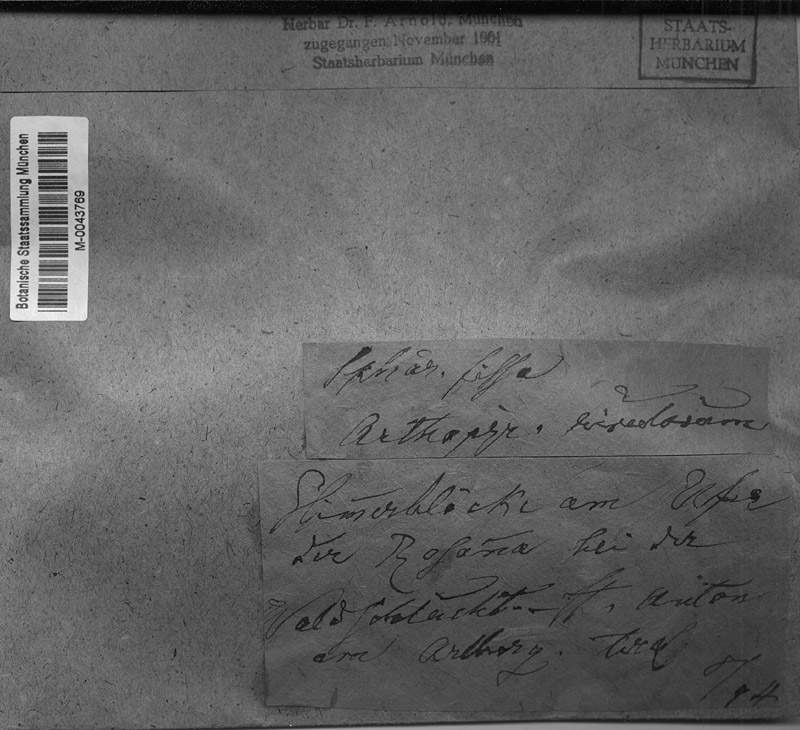 Herbar Dr. F. Arnold, München
zugegangen: November 1901
Staatsherbarium München
STAATS-
HERBARIUM
MÜNCHEN
Botanische Staatssammlung München
M-0043769
Sphär. fissa
Arthopyr.
Glimerblöcke am Ufer
der Rosana bei der
Waldschlucht - St. Anton
am Arlberg. Tirol
94